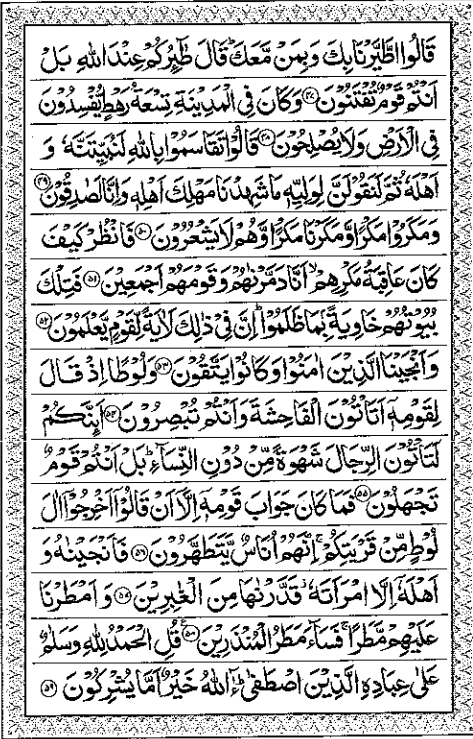 قَالُوا اطَّيَّرْنَا بِكَ وَبِمَنْ مَّعَكَ ؕ قَالَ طٰٓئِرُكُمْ عِنْدَ اللّٰهِ بَلْ
اَنْتُمْ قَوْمٌ تُفْتَنُوْنَ ﴿۴۷﴾ وَكَانَ فِى الْمَدِيْنَةِ تِسْعَةُ رَهْطٍ يُّفْسِدُوْنَ
فِى الْاَرْضِ وَلَا يُصْلِحُوْنَ ﴿۴۸﴾ قَالُوْا تَقَاسَمُوْا بِاللّٰهِ لَنُبَيِّتَنَّهٗ وَ
اَهْلَهٗ ثُمَّ لَنَقُوْلَنَّ لِوَلِيِّهٖ مَا شَهِدْنَا مَهْلِكَ اَهْلِهٖ وَاِنَّا لَصٰدِقُوْنَ ﴿۴۹﴾
وَمَكَرُوْا مَكْرًا وَّمَكَرْنَا مَكْرًا وَّهُمْ لَا يَشْعُرُوْنَ ﴿۵۰﴾ فَانْظُرْ كَيْفَ
كَانَ عَاقِبَةُ مَكْرِهِمْ ۙ اَنَّا دَمَّرْنٰهُمْ وَقَوْمَهُمْ اَجْمَعِيْنَ ﴿۵۱﴾ فَتِلْكَ
بُيُوْتُهُمْ خَاوِيَةًۢ بِمَا ظَلَمُوْا ؕ اِنَّ فِىْ ذٰلِكَ لَاٰيَةً لِّقَوْمٍ يَّعْلَمُوْنَ ﴿۵۲﴾
وَاَنْجَيْنَا الَّذِيْنَ اٰمَنُوْا وَكَانُوْا يَتَّقُوْنَ ﴿۵۳﴾ وَلُوْطًا اِذْ قَالَ
لِقَوْمِهٖٓ اَتَاْتُوْنَ الْفَاحِشَةَ وَاَنْتُمْ تُبْصِرُوْنَ ﴿۵۴﴾ اَئِنَّكُمْ
لَتَاْتُوْنَ الرِّجَالَ شَهْوَةً مِّنْ دُوْنِ النِّسَآءِ ؕ بَلْ اَنْتُمْ قَوْمٌ
تَجْهَلُوْنَ ﴿۵۵﴾ فَمَا كَانَ جَوَابَ قَوْمِهٖٓ اِلَّاۤ اَنْ قَالُوْٓا اَخْرِجُوْٓا اٰلَ
لُوْطٍ مِّنْ قَرْيَتِكُمْ ۚ اِنَّهُمْ اُنَاسٌ يَّتَطَهَّرُوْنَ ﴿۵۶﴾ فَاَنْجَيْنٰهُ وَ
اَهْلَهٗٓ اِلَّا امْرَاَتَهٗ ؗ قَدَّرْنٰهَا مِنَ الْغٰبِرِيْنَ ﴿۵۷﴾ وَ اَمْطَرْنَا
عَلَيْهِمْ مَّطَرًا ۚ فَسَآءَ مَطَرُ الْمُنْذَرِيْنَ ﴿۵۸﴾ قُلِ الْحَمْدُ لِلّٰهِ وَسَلٰمٌ
عَلٰى عِبَادِهِ الَّذِيْنَ اصْطَفٰى ؕ آٰللّٰهُ خَيْرٌ اَمَّا يُشْرِكُوْنَ ﴿۵۹﴾